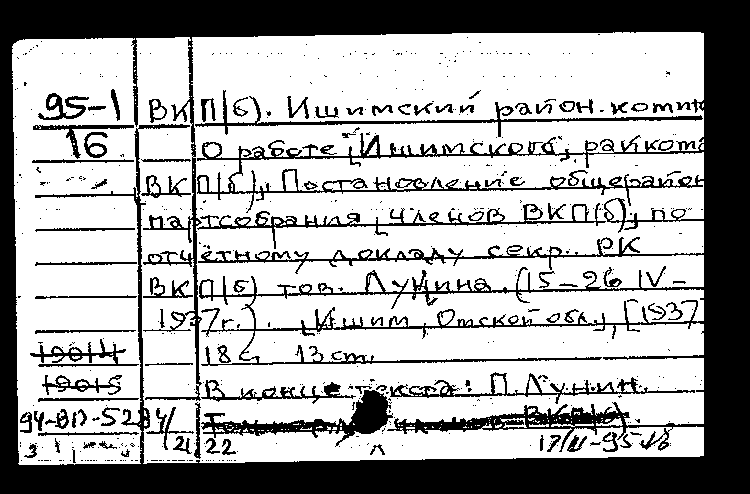 95-1 ВКП(б). Ишимский район. комите
16 О работе [Ишимского] райкома
[ВКП(б)]. Постановление общерайон
партсобрания [членов ВКП(б)] по
отчётному докладу секр. РК
ВКП(б) тов. Лунина. (15-26 IV-
1937г.). [Ишим, Омской обл.], [1937]
19014 18 с. 13 см.
19015 В конце текста: П. Лунин.
94-ВП-5284/ Только для членов ВКП(б).
3 21,22 Л 17/II-95